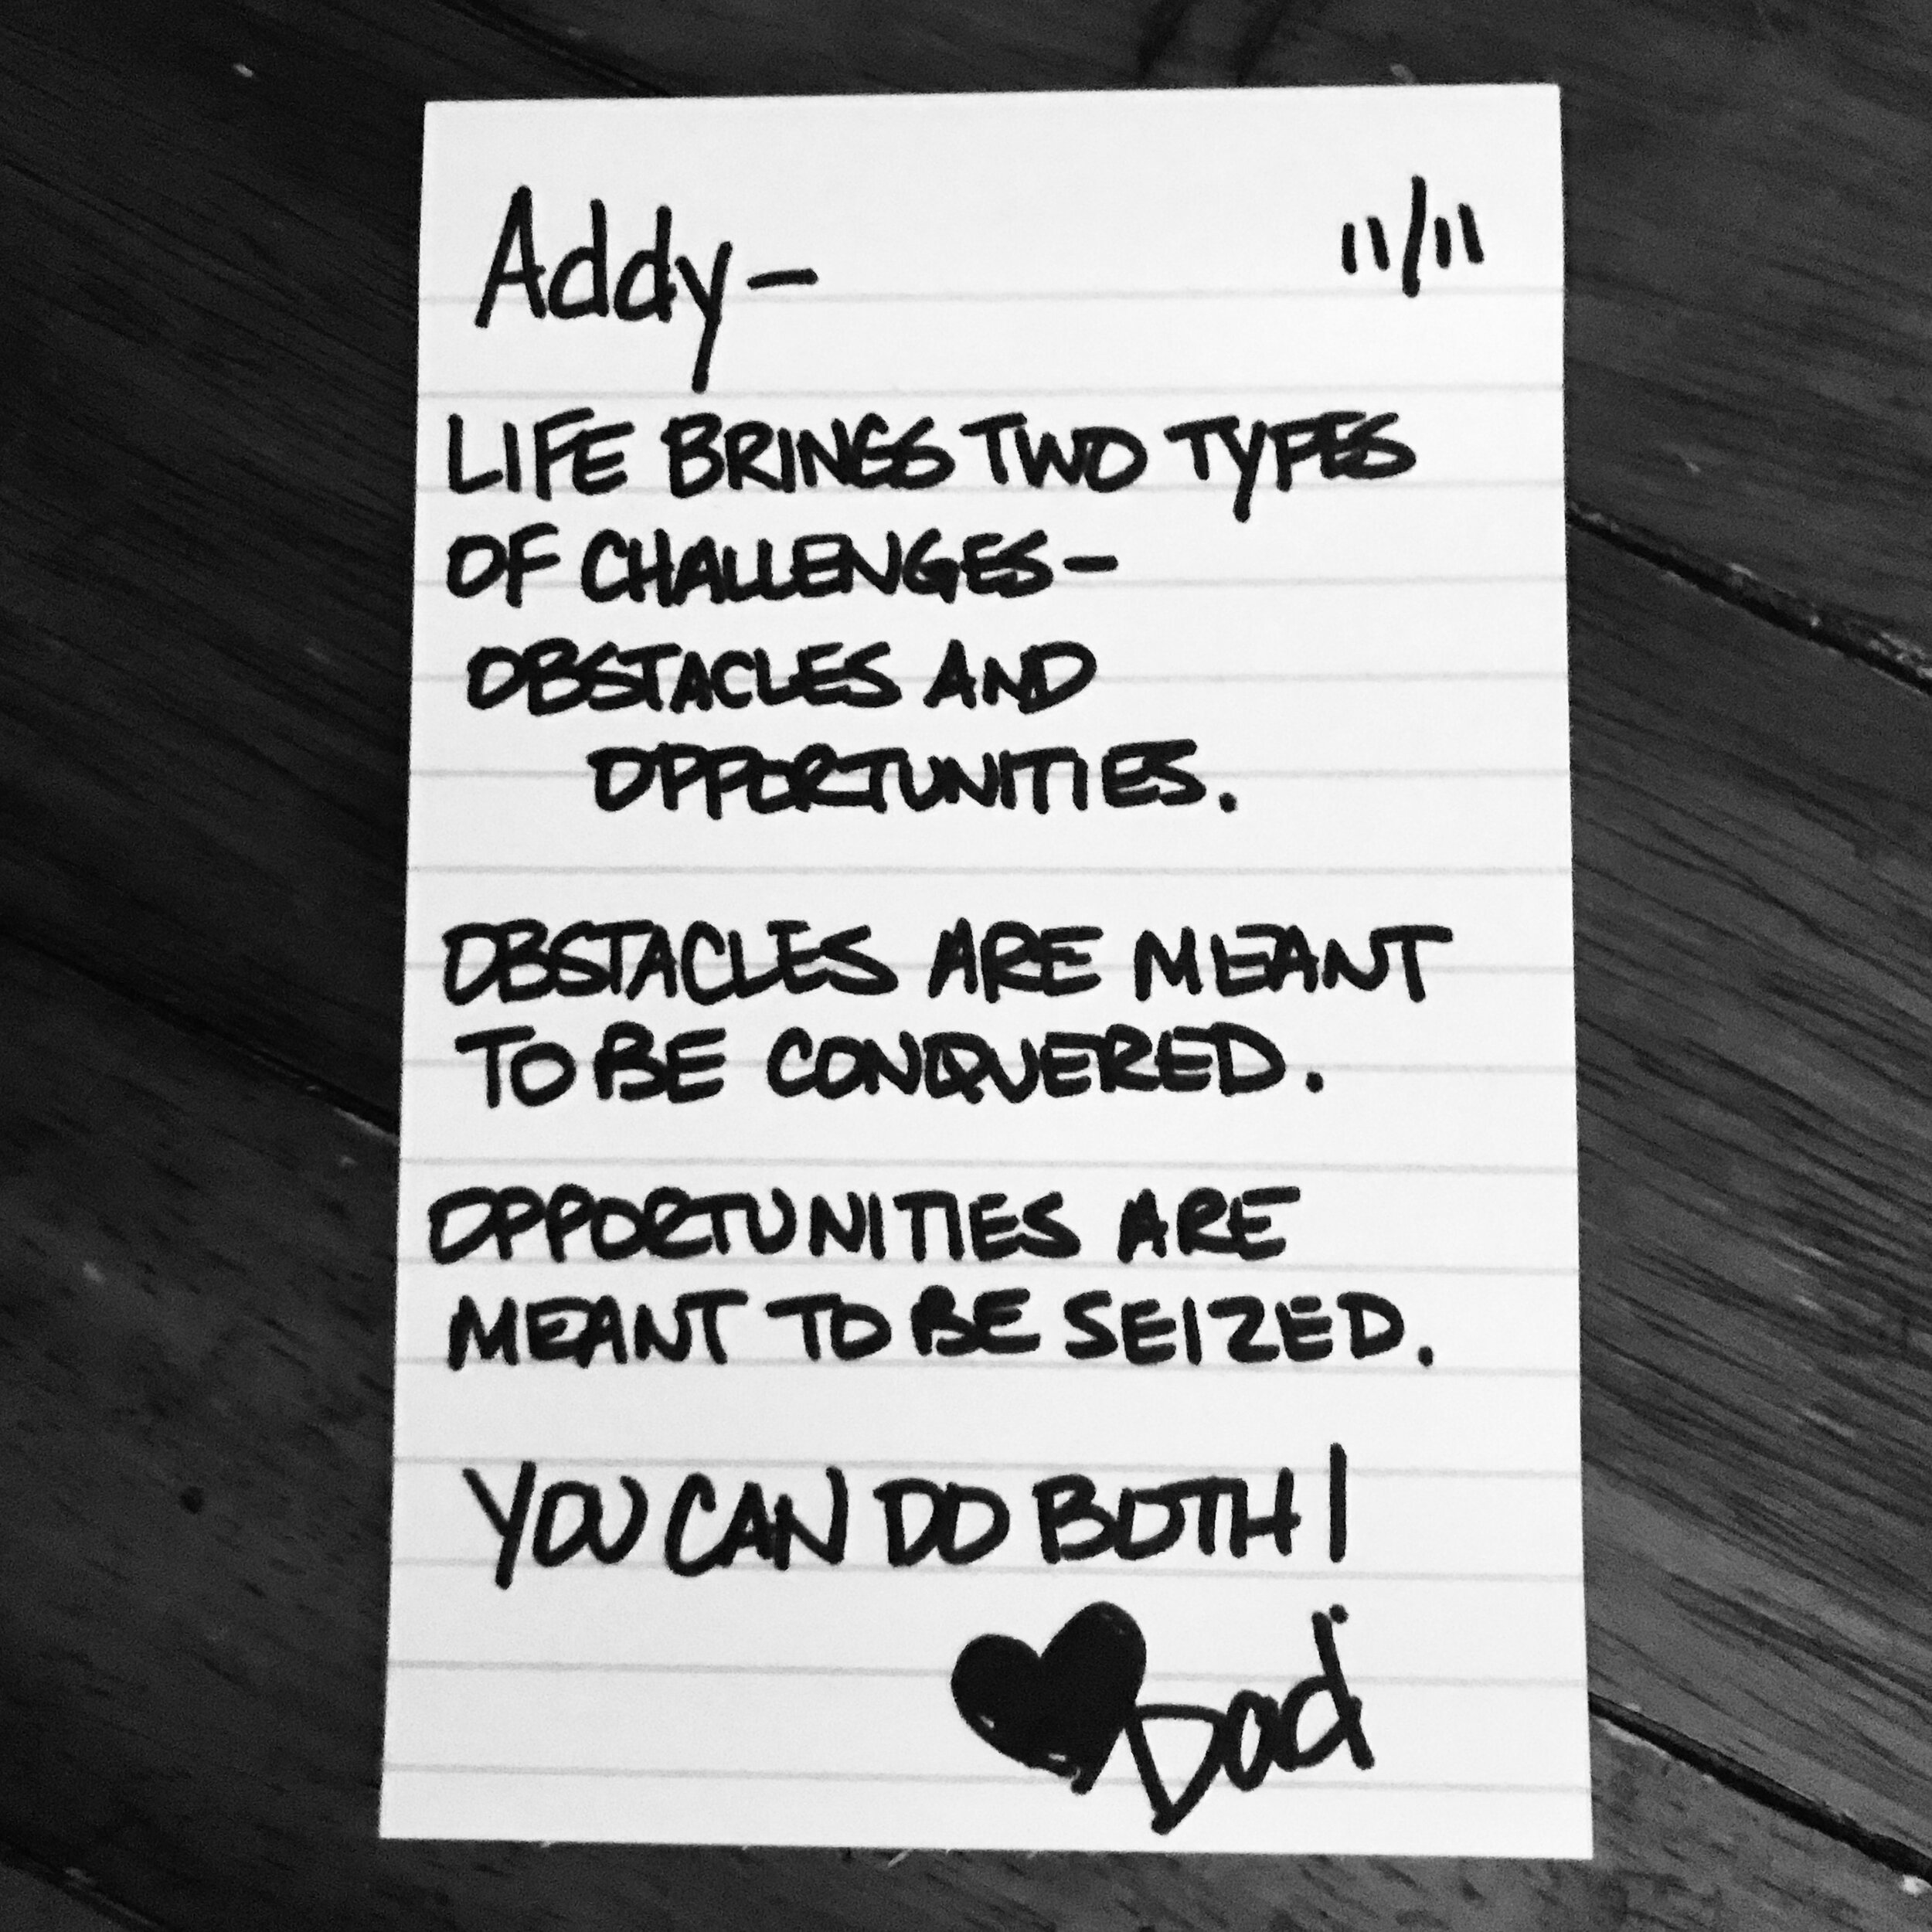 Addy- 11/11
LIFE BRINGS TWO TYPES
OF CHALLENGES-
OBSTACLES AND
OPPORTUNITIES.
OBSTACLES ARE MEANT
TO BE CONQUERED.
OPPORTUNITIES ARE
MEANT TO BE SEIZED.
YOU CAN DO BOTH!
♥Dad